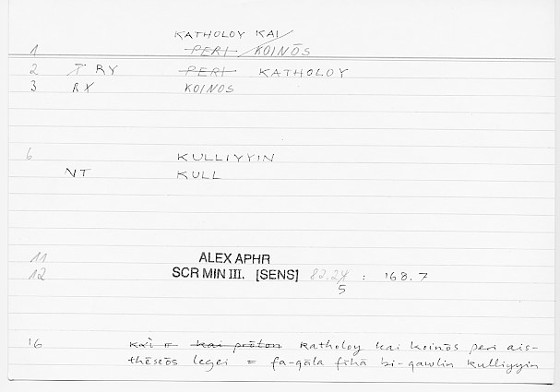 KATHOLOY KAI
1 PERI KOINŌS
2 RY PERI KATHOLOY
3 RX KOINOS
6 KULLIYYIN
NT KULL
11 ALEX APHR
12 SCR MIN III. [SENS] 82.24 : 168.7
5
16 kai = kai prōton katholoy kai koinōs peri ais-
thēseōs legei = fa-qāla fīhā bi-qawlin kulliyyin